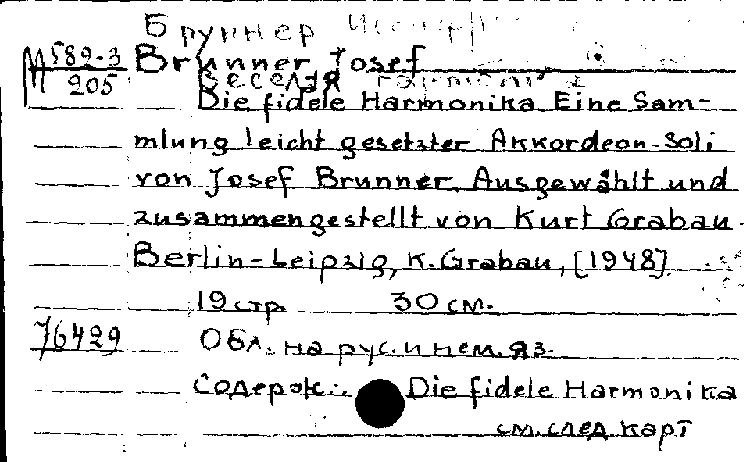 Бруннер
М 582-3 Brunner Josef
205 Веселая гармоника
Die fidele Harmonika Eine Sam-
mlung leicht gesetzter Akkordeon-Soli
von Josef Brunner. Ausgewählt und
zusammengestellt von Kurt Grabau
Berlin-Leipzig, K. Grabau, [1948]
19 стр. 30 см.
76429 Обл. на рус. и нем. яз.
Содерж.: Die fidele Harmonika
см. след. карт